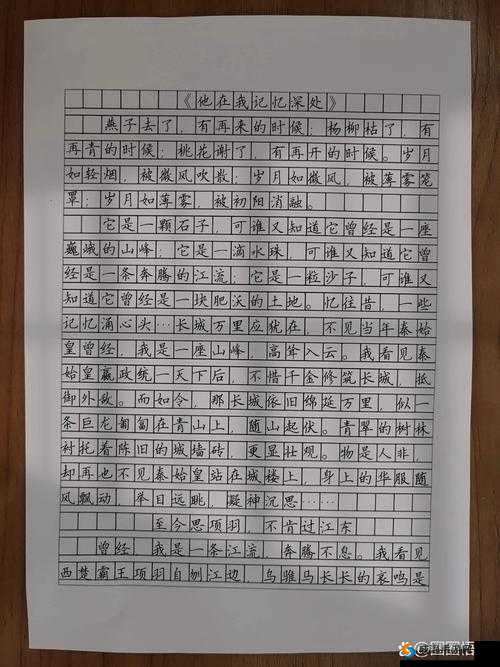 《他在我记忆深处》
燕子去了，有再来的时候；杨柳枯了，有
再青的时候；桃花谢了，有再开的时候。岁月
如轻烟，被微风吹散；岁月如微风，被薄雾笼
罩；岁月如薄雾，被初阳消融。
它是一颗石子，可谁又知道它曾经是一座
巍峨的山峰；它是一滴水珠，可谁又知道它曾
经是一条奔腾的江流；它是一粒沙子，可谁又
知道它曾经是一块肥沃的土地。忆往昔，一些
记忆涌心头…长城万里应犹在，不见当年秦始
皇曾经，我是一座山峰，高耸入云。我看见秦
始皇嬴政统一天下后，不惜千金修筑长城，抵
御外敌。而如今，那长城依旧绵延万里，似一
条巨龙匍匐在青山上，随山起伏。青翠的树林
衬托着陈旧的城墙砖，更显壮观。物是人非，
却再也不见秦始皇站在城楼上，身上的华服随
风飘动，举目远眺，凝神沉思……
至今思项羽，不肯过江东
曾经，我是一条江流，奔腾不息。我看见
西楚霸王项羽自刎江边，乌骓马长长的哀鸣是